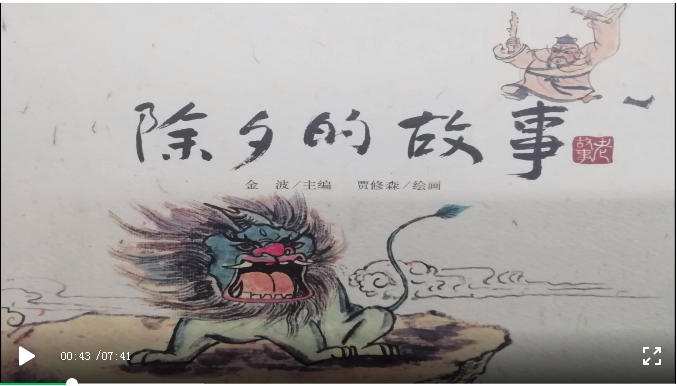 除夕的故事
老故事
金 波/主编 贾修森/绘画
00:43 /07:41